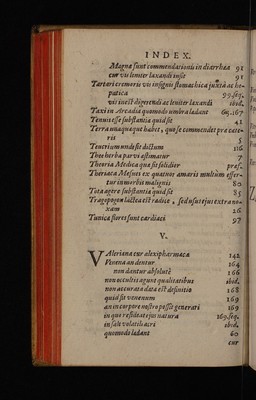 INDEX.
Magna sunt commendationis in diarrhœa 91
cur vis leniter laxandi insit 91
Tartari cremoris vis insignis stomachica juxtà ac he-
patica 99.seq.
vis inest digerendi ac leniter laxandi ibid.
Taxi in Arcadia quomodo umbra lædant 69.167
Tenuis esse substantia quid sit 41
Terra unaquaque habet, quo se commendet præ cæte-
ris 5
Teucrium unde sit dictum 116.
Theriaca Mesues ex quatuor amaris multùm affer-
tur in morbis malignis 80
Tota agere substantia quid sit 85
Tragopogon lactea est radice, sed ustus jus extra no-
xam 26
Tunica flores sunt cardiaci 97
V.
Valeriana cur alexipharmaca 142
Venena an dentur 164
non dantur absolutè 166
non occultis agunt qualitatibus ibid.
non accurata data est definitio 168
quid sit venenum 169
an in corpore nostro possit generari 169
in quo resideat ejus natura 169.seq.
in sale volatili acri ibid.
quomodo lædant 60
cur